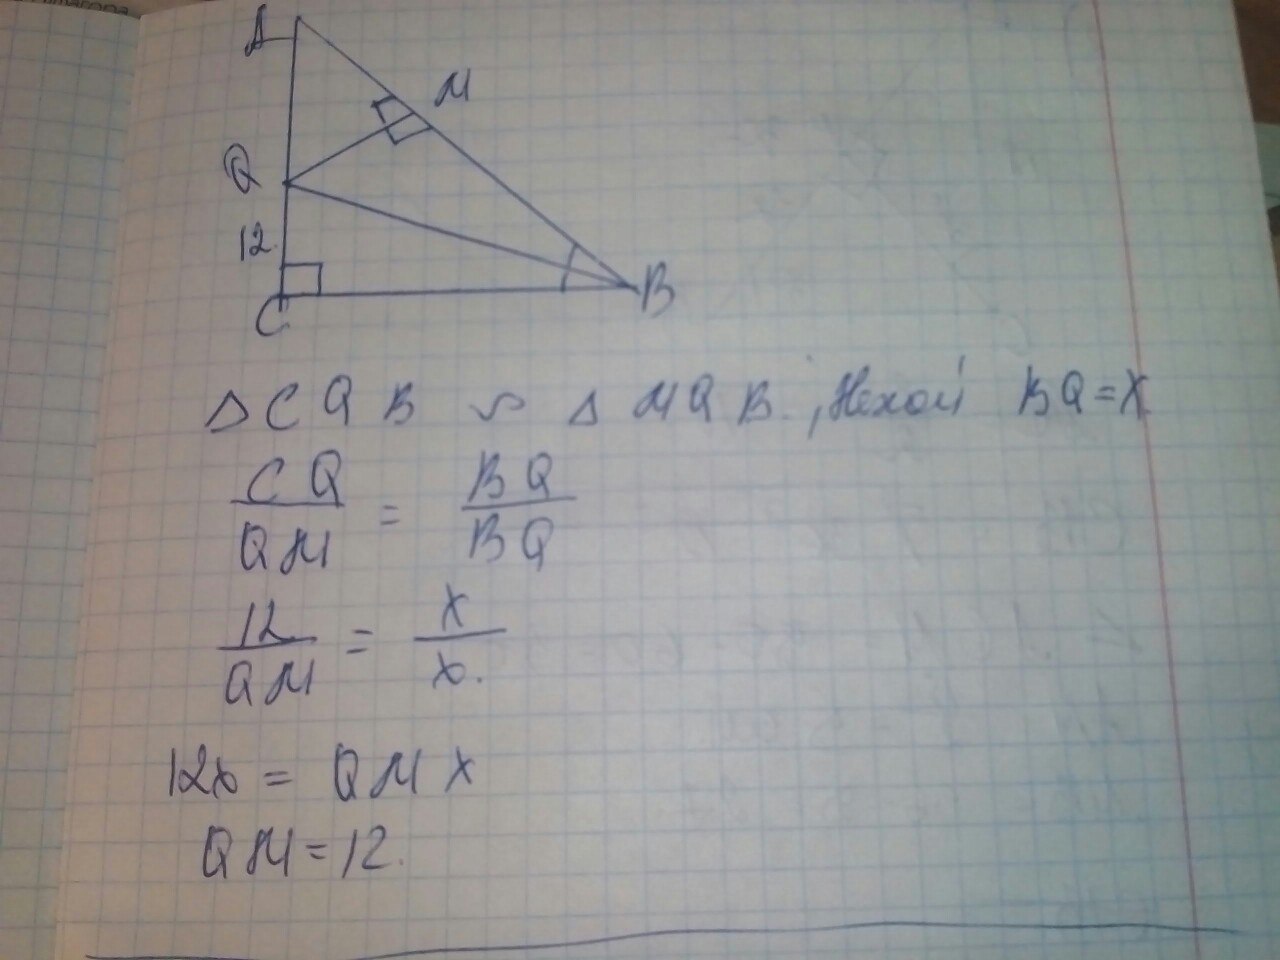 A
M
Q
12
C
B
Δ C Q B ∽ Δ M Q B., Нехай BQ = x
CQ/QM = BQ/BQ
12/QM = x/x.
12x = QM x
QM = 12.